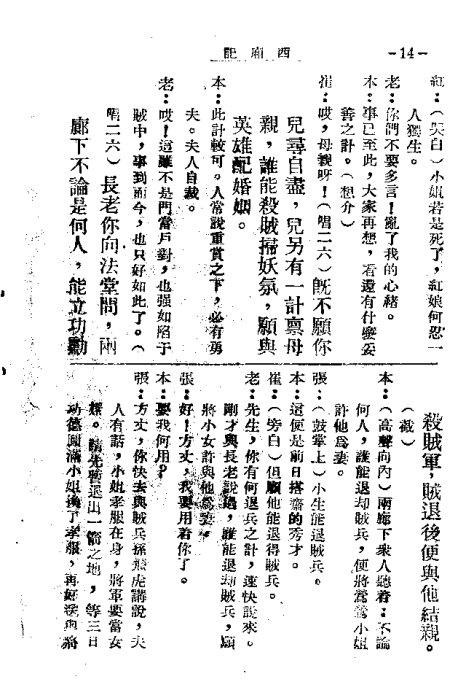 西廂記
-14-
紅：（哭白）小姐若是死了，紅娘何忍一
人獨生。
老：你們不要多言！亂了我的心緒。
本：事已至此，大家再想，看還有什麼妥
善之計。（想介）
崔：哎，母親呀！（唱二六）既不願你
兒尋自盡，兒另有一計禀母
親，誰能殺賊掃妖氛，願與
英雄配婚姻。
本：此計較可。人常說重賞之下，必有勇
夫。夫人自裁。
老：哎！這雖不是門當戶對，也强如陷于
賊中，事到而今，也只好如此了。（
唱二六）長老你向法堂問，兩
廊下不論是何人，能立功勳
殺賊軍，賊退後便與他結親。
（截）
本：（高聲向內）兩廊下衆人聽着：不論
何人，誰能退却賊兵，便將鶯鶯小姐
許他爲妻。
張：（鼓掌上）小生能退賊兵。
本：這便是前日搭齋的秀才。
崔：（旁白）但願他能退得賊兵。
老：先生，你有何退兵之計，速快說來。
剛才與長老說過，誰能退却賊兵，願
將小女許與他爲妻。
張：好！方丈，我要用着你了。
本：要我何用？
張：方丈，你快去與賊兵孫飛虎講說，夫
人有話，小姐孝服在身，將軍要當女
婿。請先暫退出一箭之地，等三日
功德圓滿小姐換了孝服，再好送與將